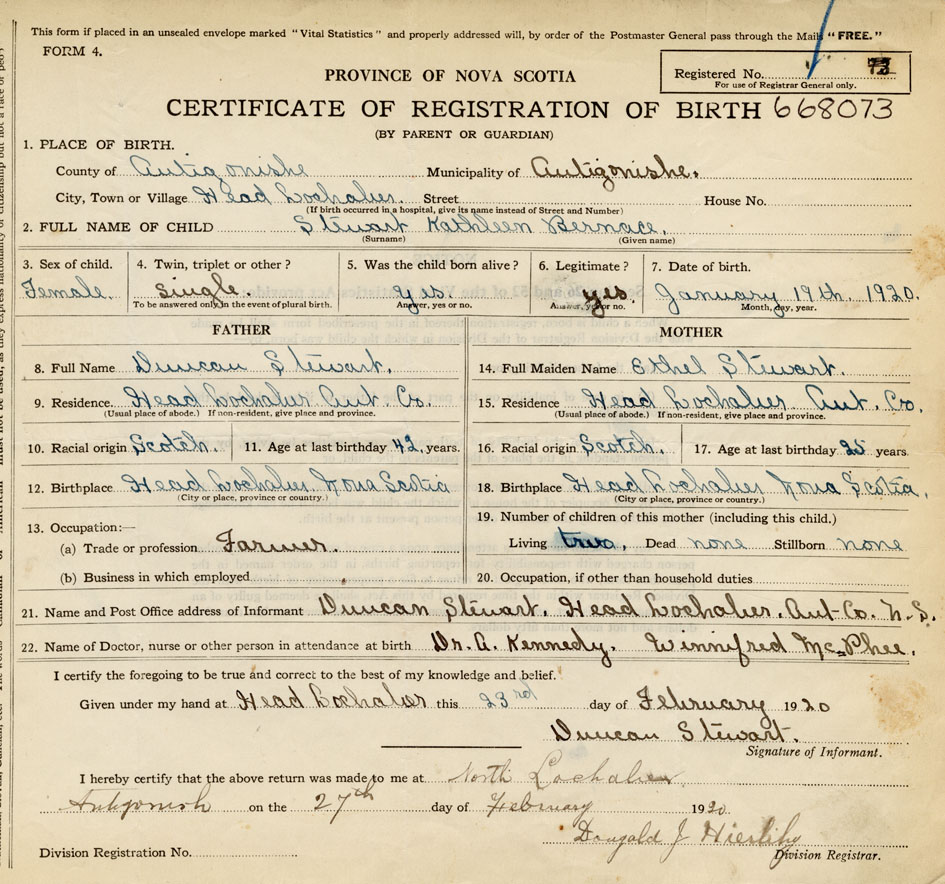 This form if placed in an unsealed envelope marked "Vital Statistics" and properly addressed will, by order of the Postmaster General pass through the Mails "FREE."
FORM 4.
PROVINCE OF NOVA SCOTIA
Registered No. 73
For use of Registrar General only.
CERTIFICATE OF REGISTRATION OF BIRTH 668073
(BY PARENT OR GUARDIAN)
1. PLACE OF BIRTH.
County of Antigonishe Municipality of Antigonishe.
City, Town or Village Head Lochaber. Street House No.
(If birth occurred in a hospital, give its name instead of Street and Number)
2. FULL NAME OF CHILD Stewart Kathleen Bernace.
(Surname) (Given name)
3. Sex of child. 4. Twin, triplet or other? 5. Was the child born alive? 6. Legitimate? 7. Date of birth.
Female. single. Yes. yes. January 19th. 1920.
To be answered only in the event of plural birth. Answer, yes or no. Answer, yes or no. Month, day, year.
FATHER MOTHER
8. Full Name Duncan Stewart. 14. Full Maiden Name Ethel Stewart.
9. Residence. Head Lochaber Ant. Co. 15. Residence Head Lochaber Ant. Co.
(Usual place of abode.) If non-resident, give place and province. (Usual place of abode.) If non-resident, give place and province.
10. Racial origin Scotch. 11. Age at last birthday 42. years. 16. Racial origin Scotch. 17. Age at last birthday 25 years.
12. Birthplace Head Lochaber Nova Scotia 18. Birthplace Head Lochaber Nova Scotia.
(City or place, province or country.) (City or place, province or country.)
13. Occupation:— 19. Number of children of this mother (including this child.)
(a) Trade or profession Farmer. Living two. Dead none Stillborn none
(b) Business in which employed 20. Occupation, if other than household duties
21. Name and Post Office address of Informant Duncan Stewart. Head Lochaber. Ant-Co. N.S.
22. Name of Doctor, nurse or other person in attendance at birth Dr. A. Kennedy. Winnifred McPhee.
I certify the foregoing to be true and correct to the best of my knowledge and belief.
Given under my hand at Head Lochaber this 23rd day of February 1920
Duncan Stewart.
Signature of Informant.
I hereby certify that the above return was made to me at North Lochaber
Antigonish on the 27th day of February 1920.
Dougald J Hierlihy
Division Registrar.
Division Registration No.